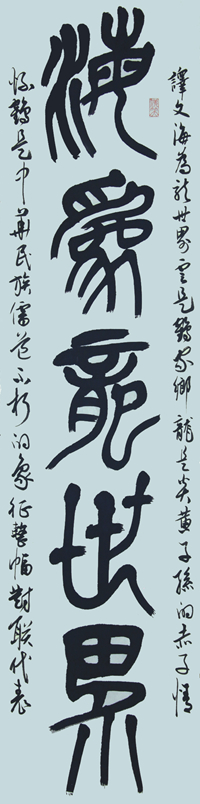 海為龍世界
譯文海為龍世界雲是鶴家鄉龍是炎黃子孫的赤子情
懷鶴是中華民族儒道不朽的象征整幅對聯代表